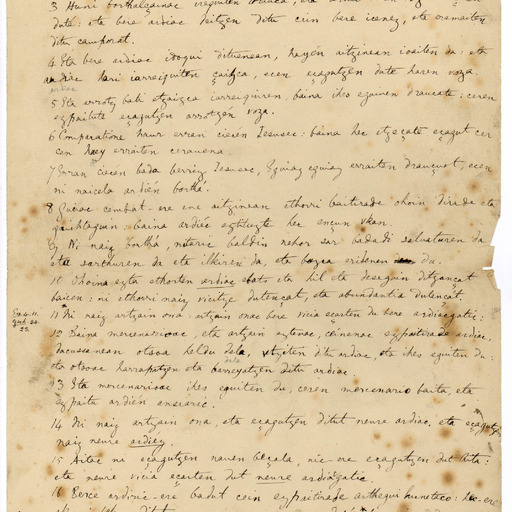 3 Huni borthalçainac irequiten
dute: eta bere ardiac deitzen ditu cein bere icenez, eta eramaiten
ditu camporat.
4 Eta bere ardiac idoqui dituenean, hayén aitzinean ioaiten da: eta
ardiac hari iarreiquiten çaitza, ecen eçagutzen dute haren voza
5 Eta arrotz bati etzaizca iarreiquiren, baina ihes eguinen draucate: ceren
ezpaitute eçagutzen arrotzen voza.
6 Comparatione haur erran ciecén Iesusec: baina hec etzeçate eçagut cer
cen hayey erraiten cerauena.
7 Erran ciecen bada berriz Iesusec, Eguiaz eguiaz erraiten drauçuet, ecen
ni naicela ardién borthá.
8 ene aitzinean ethorri baitirade ohoin dirade eta
gaichtaguin: baina ardiéc eztituzte hec ençun vkan.
9 Ni naiz borthá, nitaric baldin nehor sar badadi salvaturen da
eta sarthuren da eta ilkiren da, eta bazca eridenen du.
10 Ohoina ezta ethorten ebats eta hil eta deseguin ditzançat
baicen: ni ethorri naiz vicitze dutençat, eta abundantia dutençat.
11 Ni naiz artzain ona: artzain onac bere vicia eçarten du bere ardiacgatic:
12 Baina mercenarioac, eta artzain eztenac, ceinenac ezpaitirade ardiac,
dacussanean otsoa heldu dela, vtziten ditu ardiac, eta ihes eguiten du:
eta otsoac harrapatzen eta barreyatzen ditu ardiac.
13 Eta mercenarioac ihes eguiten du, ceren mercenario baita, eta
ezpaita ardién ansiaric.
14 Ni naiz artzain ona, eta eçagutzen ditut neure ardiac, eta eçagutzen
naiz neure ardiez.
15 Aitac ni eçagutzen nauen beçala, nic-ere eçagutzen dut Aita:
eta neure vicia eçarten dut neure ardiacgatic.
16 Berce ardiric-ere badut cein ezpaitirade arthegui hunetaco: hec-ere